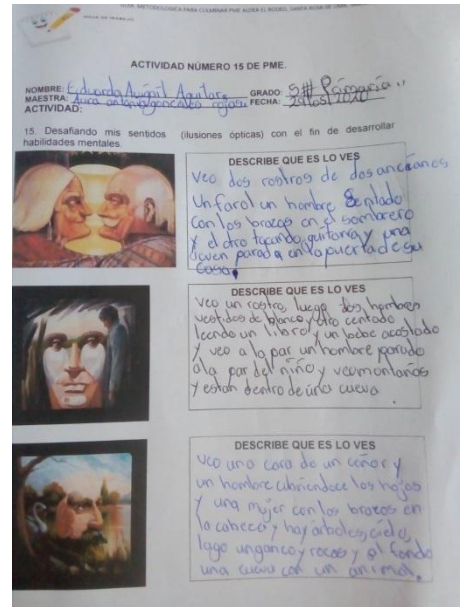 GUIA METODOLOGICA PARA CULMINAR PME ALDEA EL RODEO, SANTA ROSA DE LIMA, SANTA
HOJA DE TRABAJO
ACTIVIDAD NÚMERO 15 DE PME.
NOMBRE: Eduarda Avigail Aguilar GRADO: 5# Primaria
MAESTRA: Aura gonzales rojas FECHA:
ACTIVIDAD:
15. Desafiando mis sentidos (ilusiones ópticas) con el fin de desarrollar
habilidades mentales.
DESCRIBE QUE ES LO VES
Veo dos rostros de dos ancianos
Un farol un hombre Sentado
Con los brazos en el sombrero
y el otro tocando guitarra y una
joven parada en la puerta de su
Casa.
DESCRIBE QUE ES LO VES
Veo un rostro, luego dos hombres
vestidos de blanco, otro centado
leendo un libro y un acostado
y veo a la par un hombre parado
a la par del niño y veo montañas
y estan dentro de una cueva.
DESCRIBE QUE ES LO VES
veo una cara de un ceñor y
un hombre cubriendoce los hojos
y una mujer con los brazos en
la cabeza y hay árboles, cielo,
lago un ganco y rocas y al fondo
una cueva con un animal.